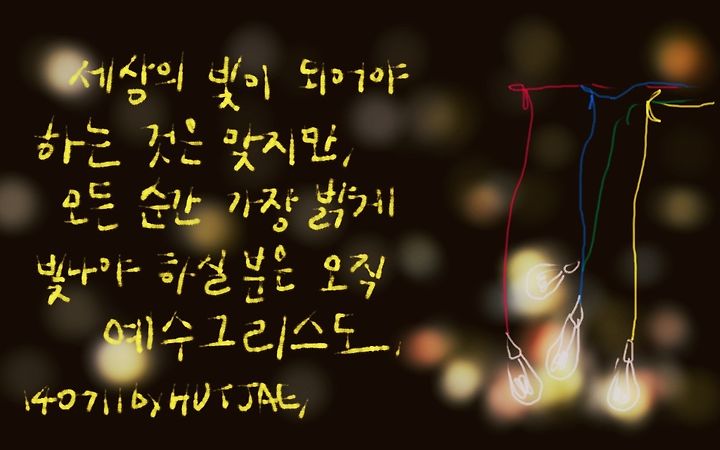 세상의 빛이 되어야
하는 것은 맞지만,
모든 순간 가장 밝게
빛나야 하실 분은 오직
예수 그리스도.
140711 by HUTJAE,